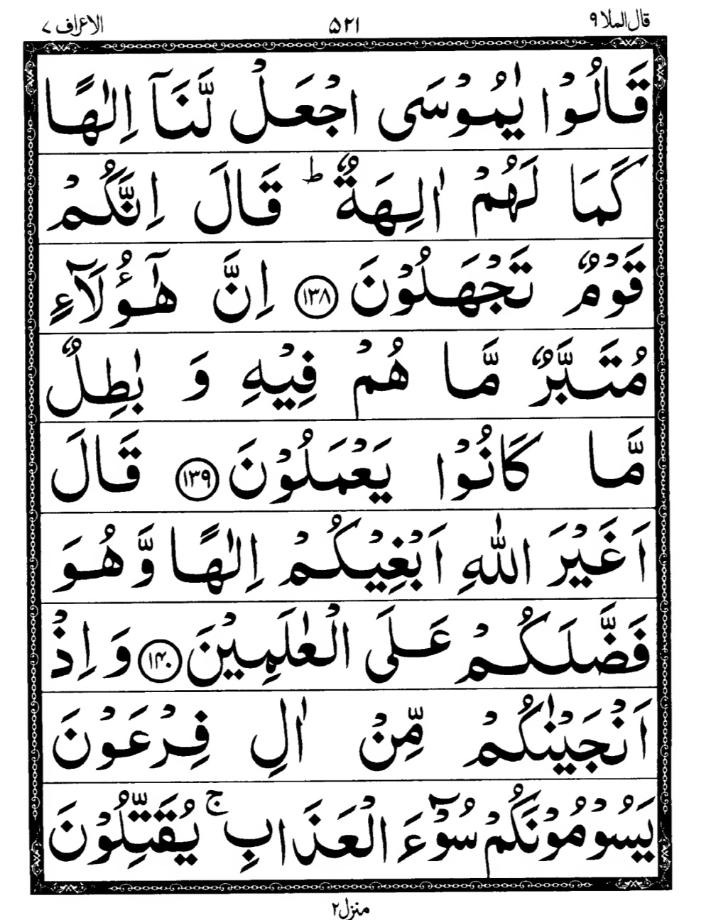 قال الملا ٩ ٥٢١ الاعراف ٧
قَالُوْا يٰمُوْسَى اجْعَلْ لَّنَاۤ اِلٰهًا
كَمَا لَهُمْ اٰلِهَةٌ ؕ قَالَ اِنَّكُمْ
قَوْمٌ تَجْهَلُوْنَ ﴿١٣٨﴾ اِنَّ هٰۤؤُلَآءِ
مُتَبَّرٌ مَّا هُمْ فِيْهِ وَ بٰطِلٌ
مَّا كَانُوْا يَعْمَلُوْنَ ﴿١٣٩﴾ قَالَ
اَغَيْرَ اللّٰهِ اَبْغِيْكُمْ اِلٰهًا وَّ هُوَ
فَضَّلَكُمْ عَلَى الْعٰلَمِيْنَ ﴿١٤٠﴾ وَ اِذْ
اَنْجَيْنٰكُمْ مِّنْ اٰلِ فِرْعَوْنَ
يَسُوْمُوْنَكُمْ سُوْٓءَ الْعَذَابِ ۚ يُقَتِّلُوْنَ
منزل ٢